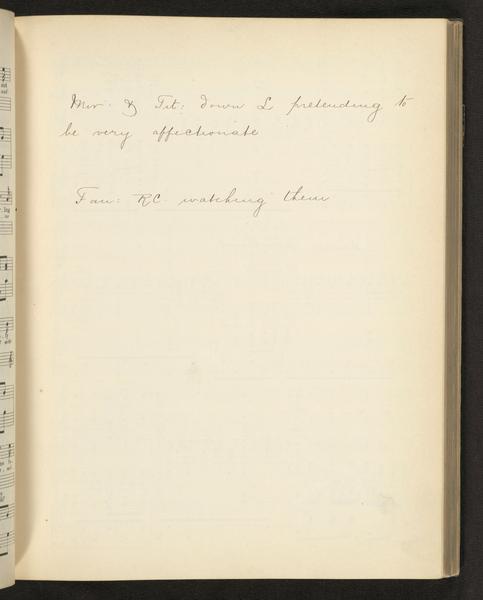 Mir. & Tit: down L pretending to
be very affectionate
Fau: RC. watching them